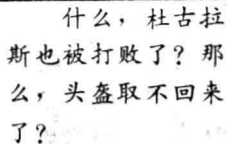 什么，杜古拉
斯也被打败了？那
么，头盔取不回来
了？